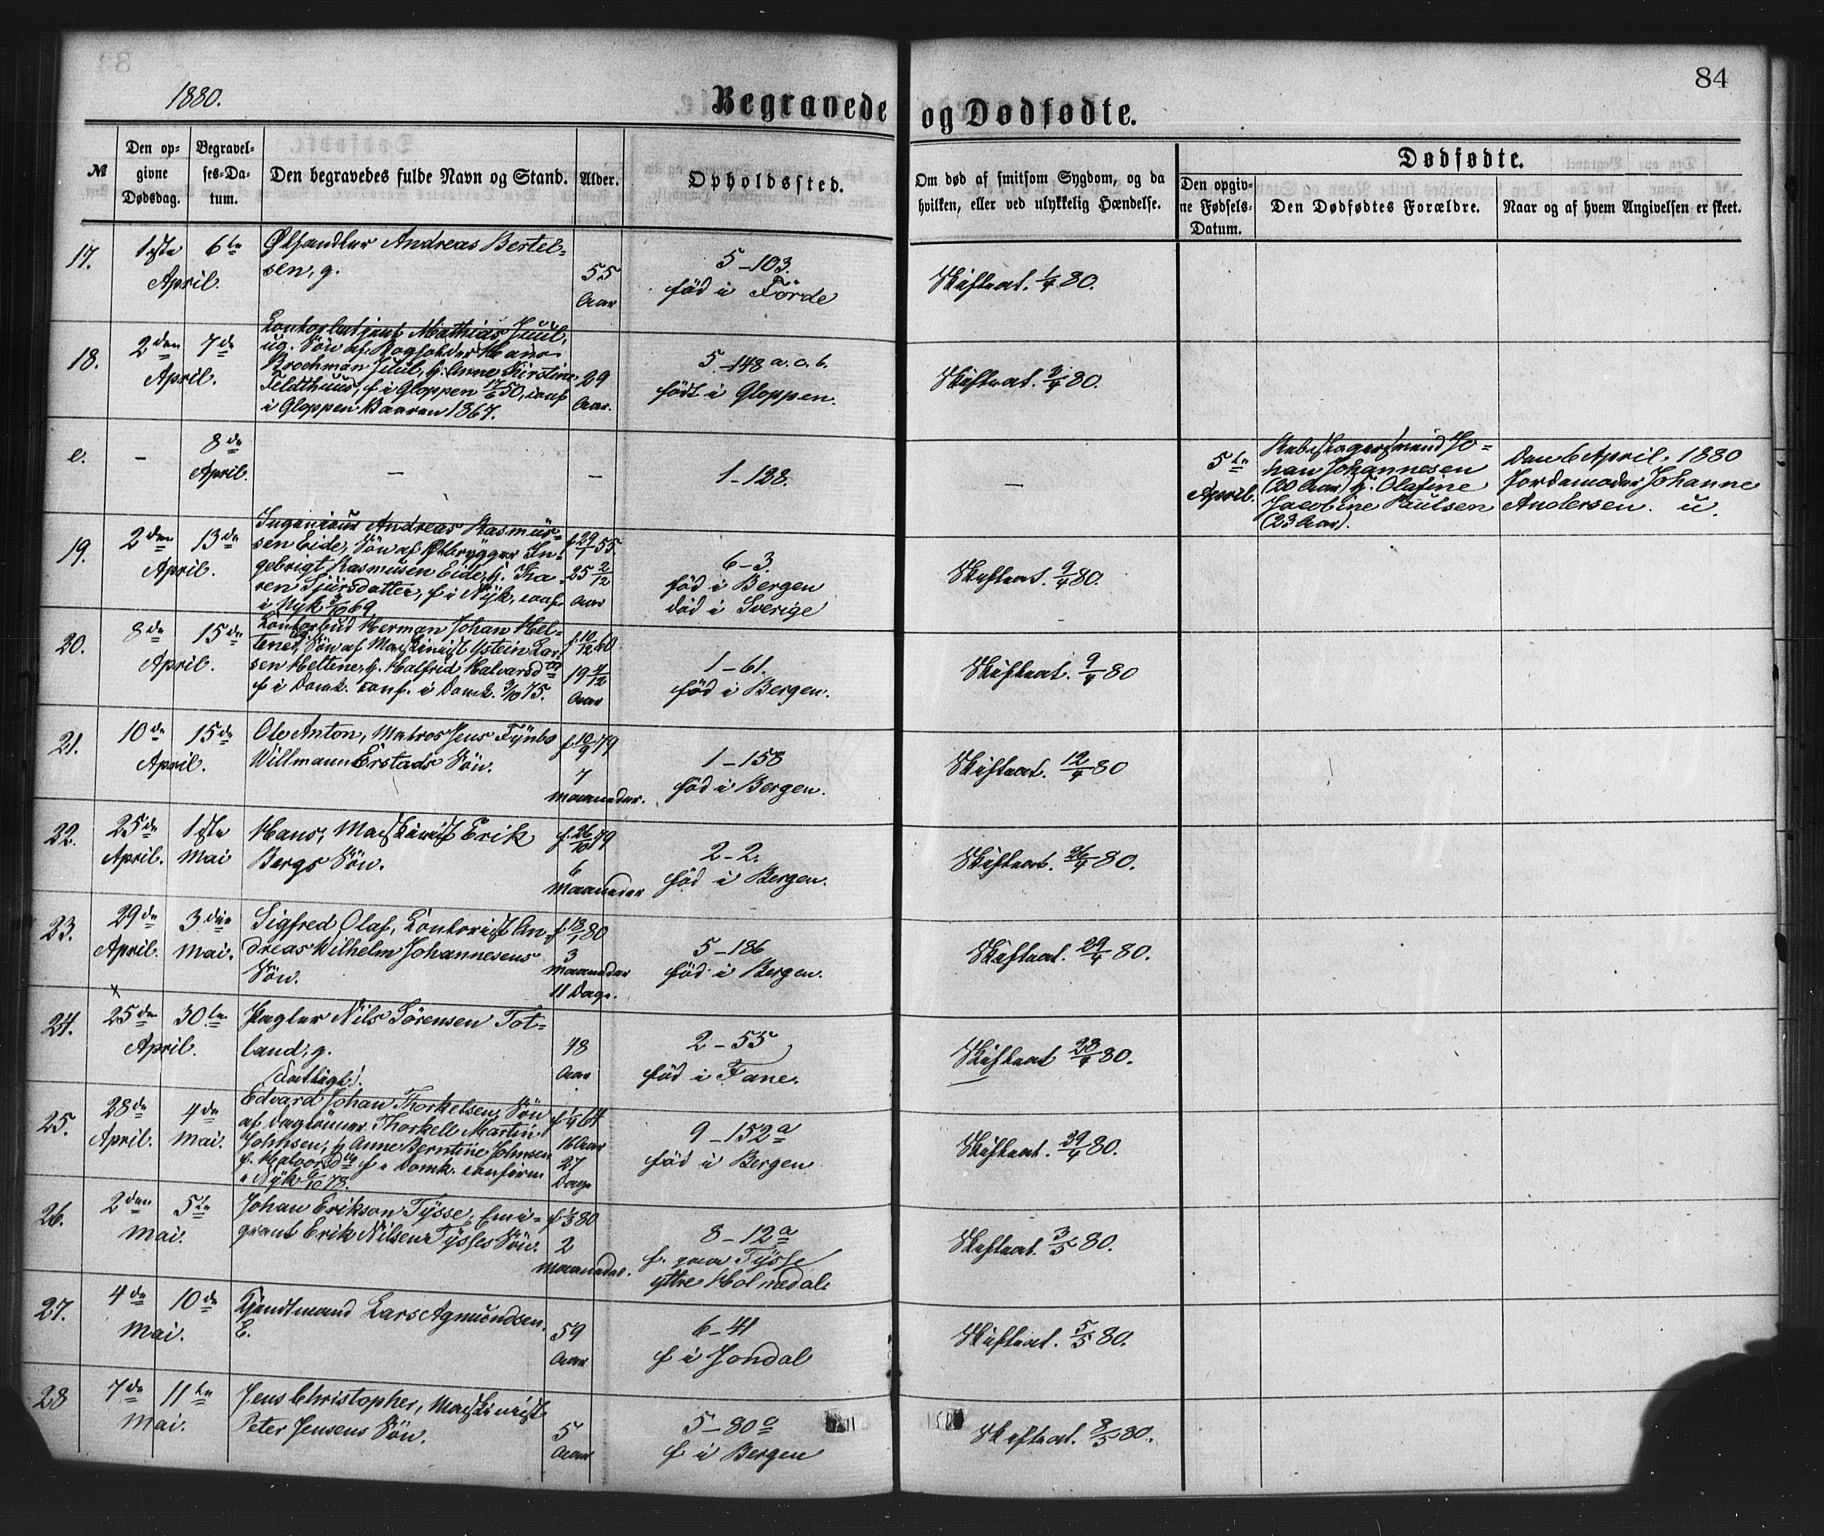 84
1880.
Begravede og Dødfødte.
№
Den opgivne Dødsdag.
Begravelses-Datum.
Den begravedes fulde Navn og Stand.
Alder.
Opholdssted.
Om død af smitsom Sygdom, og da hvilken, eller ved ulykkelig Hændelse.
Dødfødte.
Den opgivne Fødsels-Datum.
Den Dødfødtes Forældre.
Naar og af hvem Angivelsen er skeet.
17.
1ste 6te
April.
Ølhandler Andreas Bertel-
sen, g.
55
Aar
5-103.
død i Førde
Skifteat. 1/4 80.
18.
2den 7de
April.
Kontorbetjent Mathias Juul,
ug. Søn af Bogholder Hans
Brochman Juul, h. Anne Kirstine
Feldthuus, f i Gloppen 17/6 50, conf
i Gloppen Vaaren 1867.
29
Aar.
5-148 a. o. b.
født i Gloppen.
Skifteat. 3/4 80.
e.
-
8de
April.
-
-
1-128.
-
5te
April.
Johan Johannesen
(20 Aar) h. Olafine
Jacobine Paulsen
(23 Aar).
Den 6 April, 1880
Jordemoder Johanne
Andersen. u.
19.
2den 13de
April.
Ingenieur Andreas Rasmus-
sen Eide, Søn af Ølbrygger In-
gebrigt Rasmusen Eide, h. Ka-
ren Sjursdatter, f i Nyk, conf
i Nyk 3/10 69.
f 29/1 55
25 2/12
Aar
6-3.
fød i Bergen
død i Sverige
Skifteat. 9/4 80.
20.
8de 15de
April.
Kontorbud Herman Johan Hel-
tene, Søn af Maskinist Ystein Lar-
sen Heltene, h. Halfrid Halvorsd
f i Domk. conf. i Domk. 3/10 75.
f. 10/12 60
19 4/12
Aar
1-61.
fød i Bergen.
Skifteat. 9/4 80
21.
10de 15de
April.
Ole Anton, Matros Jens Fynbo
Willmann Erstads Søn.
f 10/9 79
7
maaneder.
1-158
fød i Bergen.
Skifteat. 12/4 80
22.
25de 1ste
April. Mai
Hans, Maskinist Erik
Bergs Søn.
f. 26/10 79
6
maaneder
2-2.
fød i Bergen.
Skifteat. 26/4 80.
23.
29de 3die
April. Mai.
Sigfred Olaf, Kontorist An-
dreas Wilhelm Johannesens
Søn.
f 18/1 80
3
maaneder
11 Dage.
5-186
fød i Bergen.
Skifteat. 29/4 80.
x
24.
25de 30te
April.
Nils Sørensen Tot-
land, g.
(Fattigt.)
48
Aar
2-55
fød i Fane.
Skifteat 28/4 80.
25.
28de 4de
April. Mai.
Edvard Johan Thorkelsen, Søn
af Daglønner Thorkell Martin
Johnsen, h Anne Berntine Johnsen
f. Halvorsd f i Domk. confirm
i Nyk 6/10 78.
f 1/4 64
16 Aar
27
Dage
9-152 a
fød i Bergen
Skifteat. 29/4 80.
26.
2den 5te
Mai.
Johan Erikson Tysse, Emi-
grant Erik Nilsen Tysses Søn.
f 1/3 80
2
maaneder.
8-12 a
f. paa Tysse
ytre Holmedal
Skifteat. 3/5 80.
27.
4de 10de
Mai.
Lars Agmundsen.
E.
59
Aar
6-41
f i Jondal
Skifteat. 5/5 80.
28
7de 11te
Mai.
Jens Christopher, Maskinist
Peter Jensens Søn.
5
Aar
5-80 a
f i Bergen
Skifteat. 8/5 80.